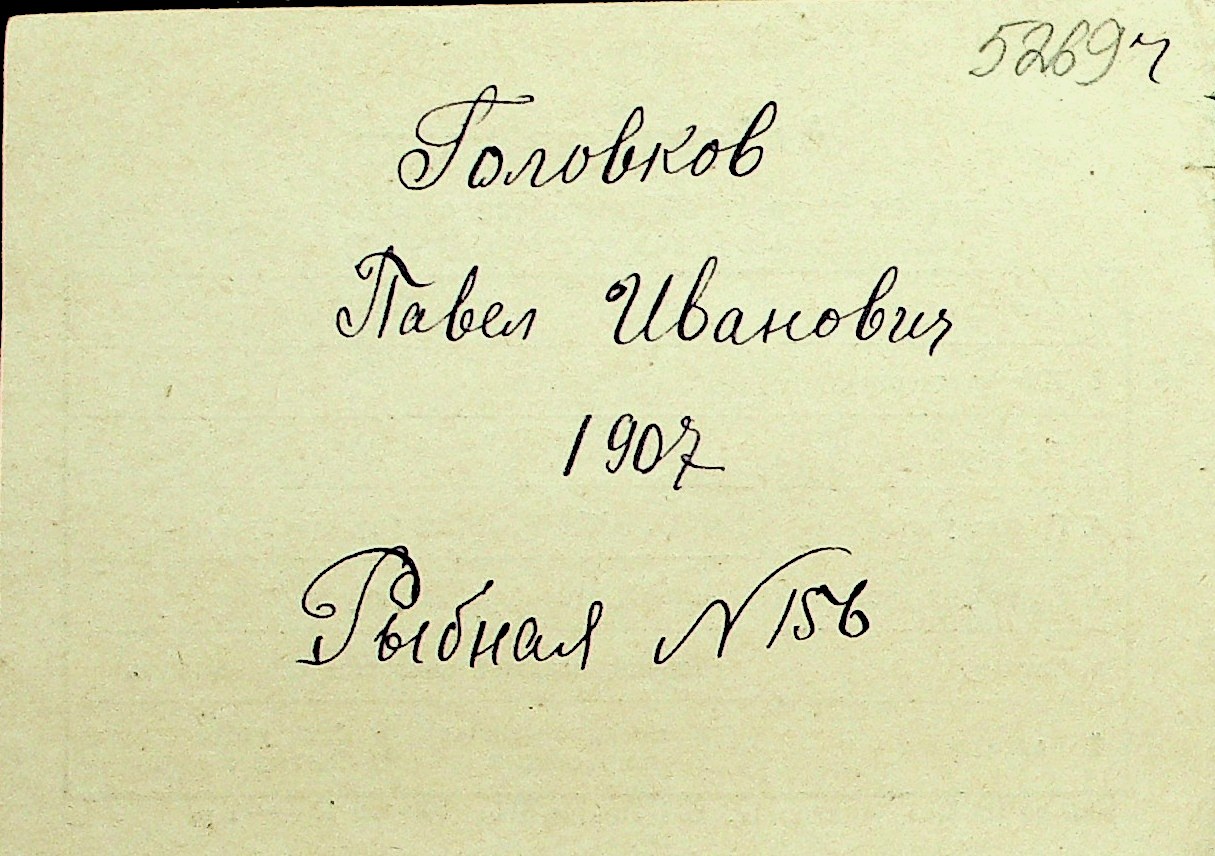 5269ч
Головков
Павел Иванович
1907
Рыбная N 156